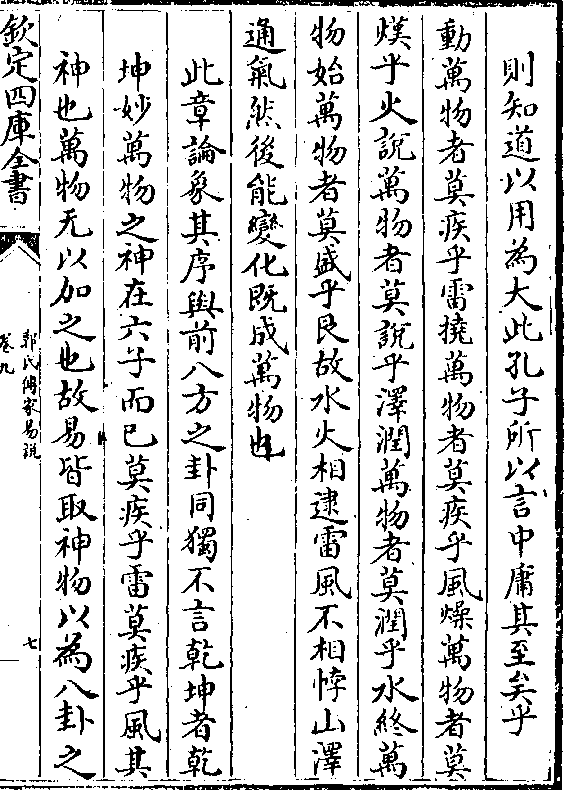 則知道以用為大此孔子所以言中庸其至矣乎
動萬物者莫疾乎雷撓萬物者莫疾乎風燥萬物者莫
熯乎火説萬物者莫説乎澤潤萬物者莫潤乎水終萬
物始萬物者莫盛乎艮故水火相逮雷風不相悖山澤
通氣然後能變化既成萬物也
此章論象其序與前八方之卦同獨不言乾坤者乾
坤妙萬物之神在六子而已莫疾乎雷莫疾乎風其
神也萬物无以加之也故易皆取神物以為八卦之
欽定四庫全書
郭氏傳家易説
卷九
七